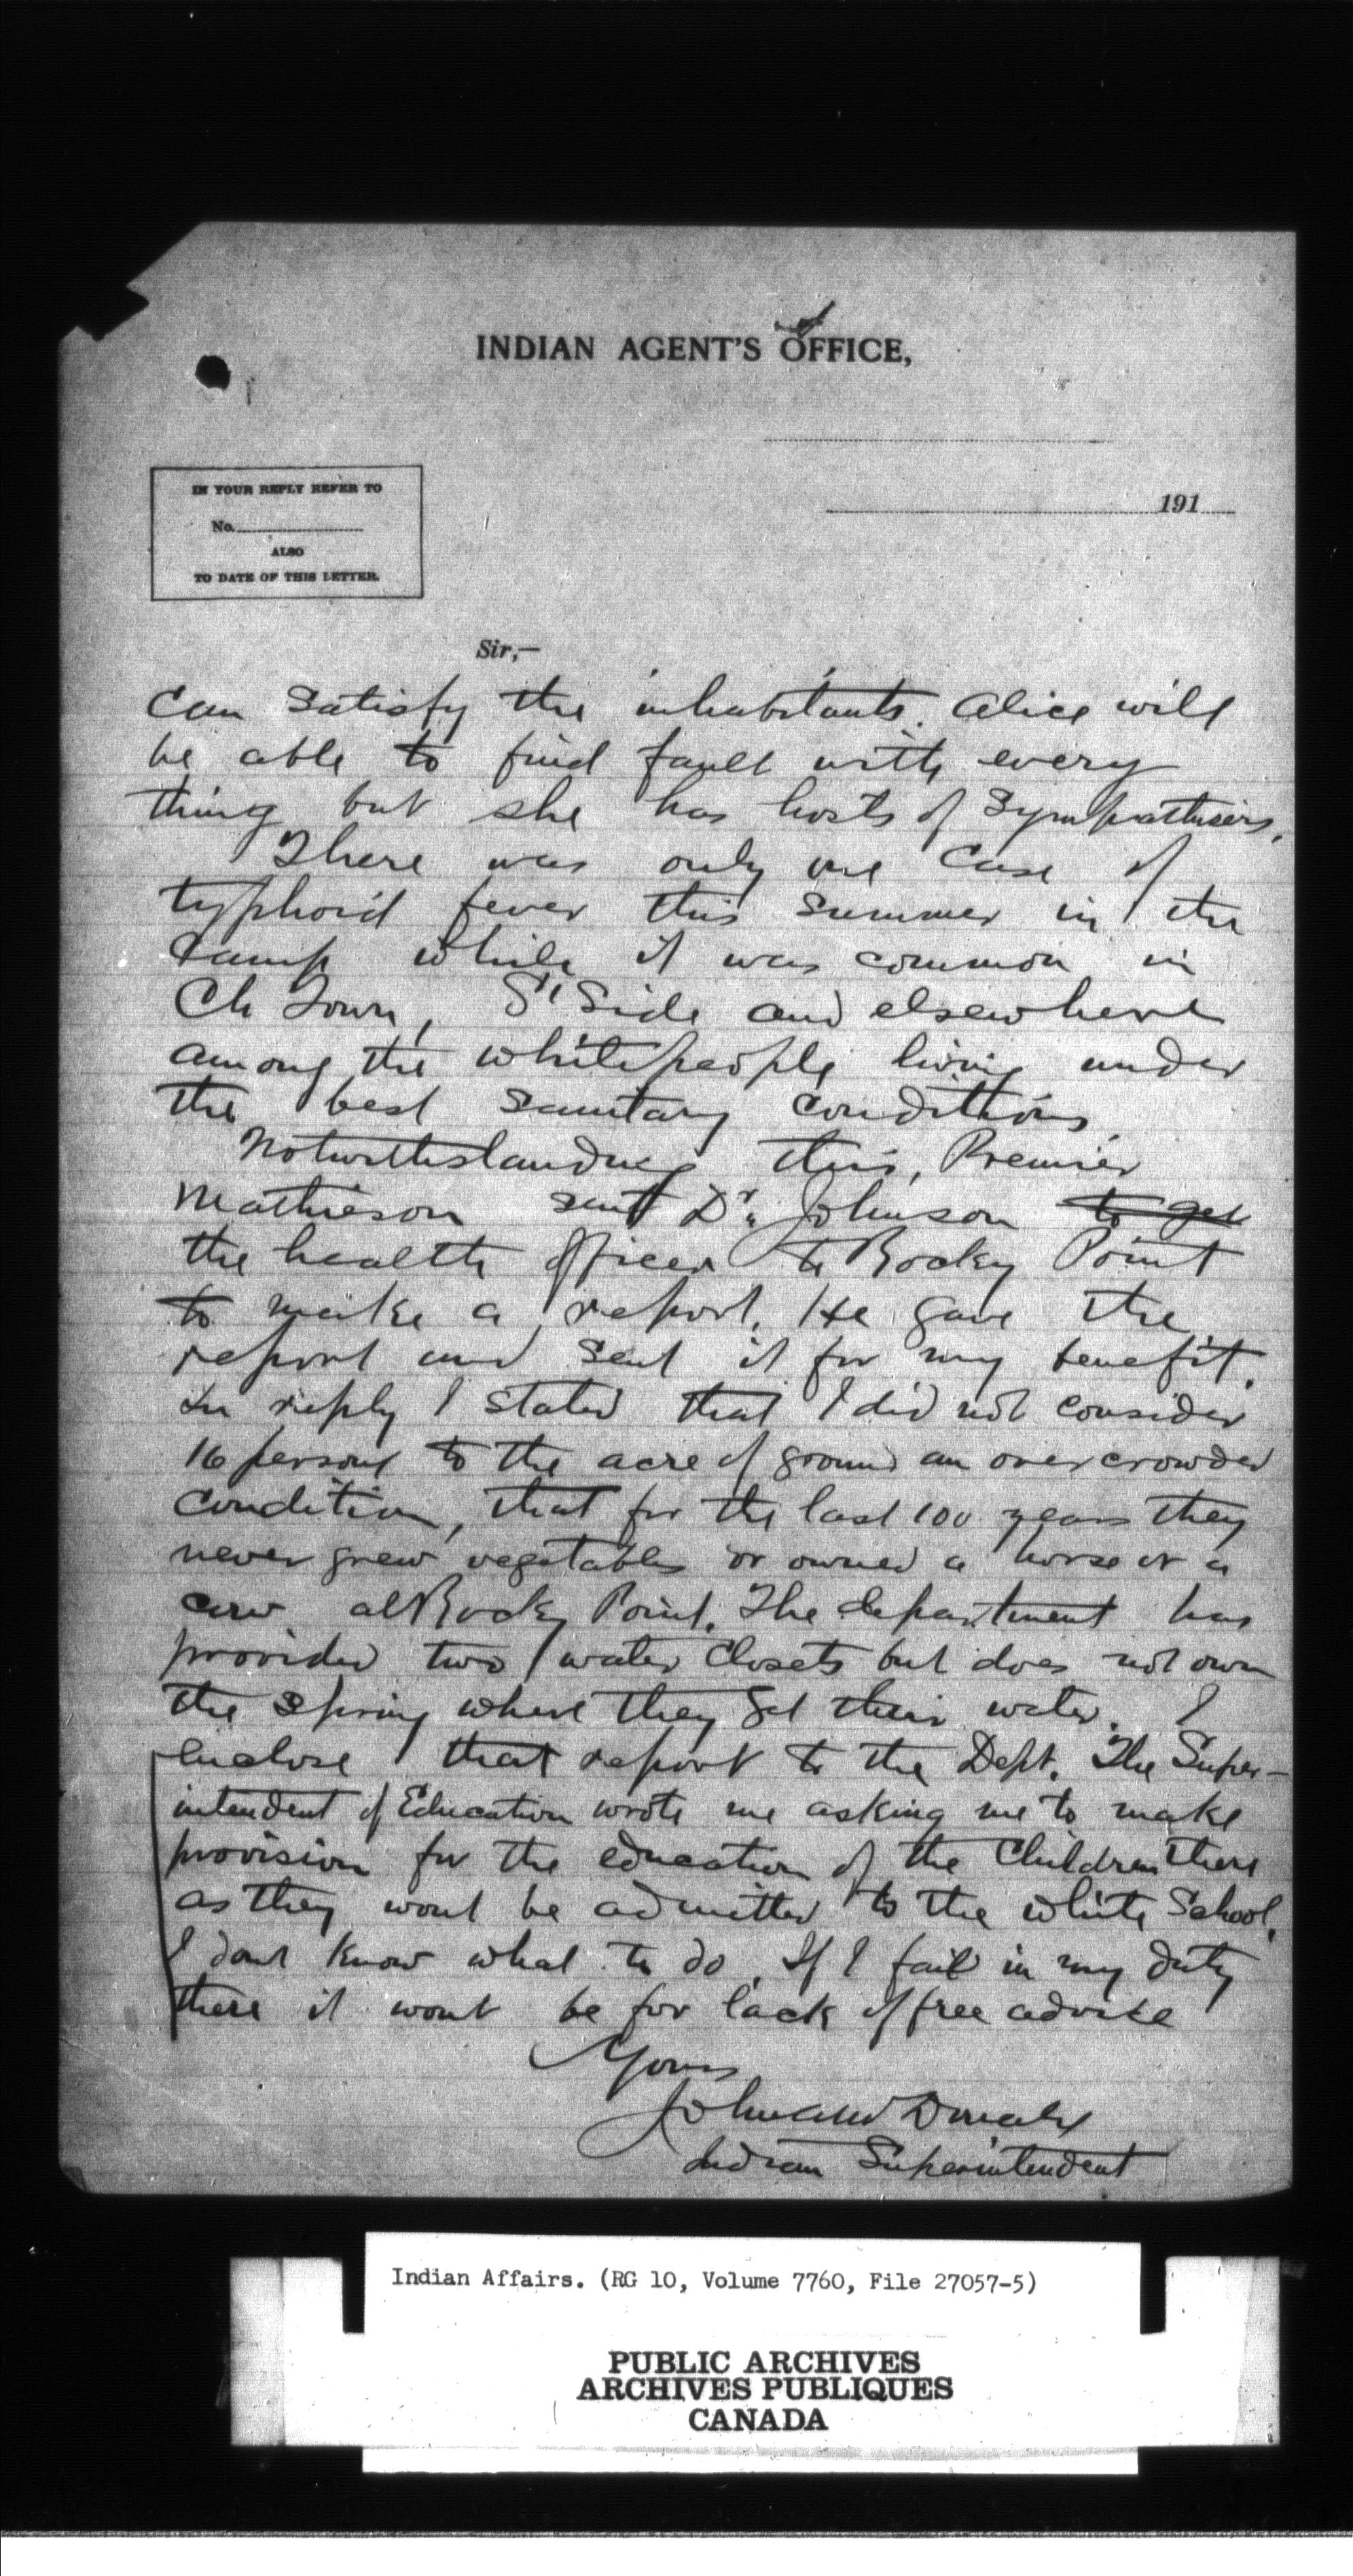 INDIAN AGENT'S OFFICE,
191
IN YOUR REPLY REFER TO
No.
ALSO
TO DATE OF THIS LETTER.
Sir,—
can satisfy the inhabitants. Alice will
be able to find fault with every
thing but she has hosts of sympathisers.
There was only one case of
typhoid fever this summer in the
camp while it was common in
Ch Town, S'Side and elsewhere
among the white people living under
the best sanitary conditions
Notwithstanding this, Premier
Mathieson sent Dr Johnson to get
the health officer to Rocky Point
to make a report. He gave the
report and sent it for my benefit.
In reply I stated that I did not consider
16 persons to the acre of ground an over crowded
condition, that for the last 100 years they
never grew vegetables or owned a horse or a
cow at Rocky Point. The department has
provided two water closets but does not own
the spring where they get their water. I
enclose that report to the Dept. The Super-
intendent of Education wrote me asking me to make
provision for the education of the Children there
as they wont be admitted to the white School.
I dont know what to do. If I fail in my duty
there it wont be for lack of free advice
Yours
Indian Superintendent
Indian Affairs. (RG 10, Volume 7760, File 27057-5)
PUBLIC ARCHIVES
ARCHIVES PUBLIQUES
CANADA